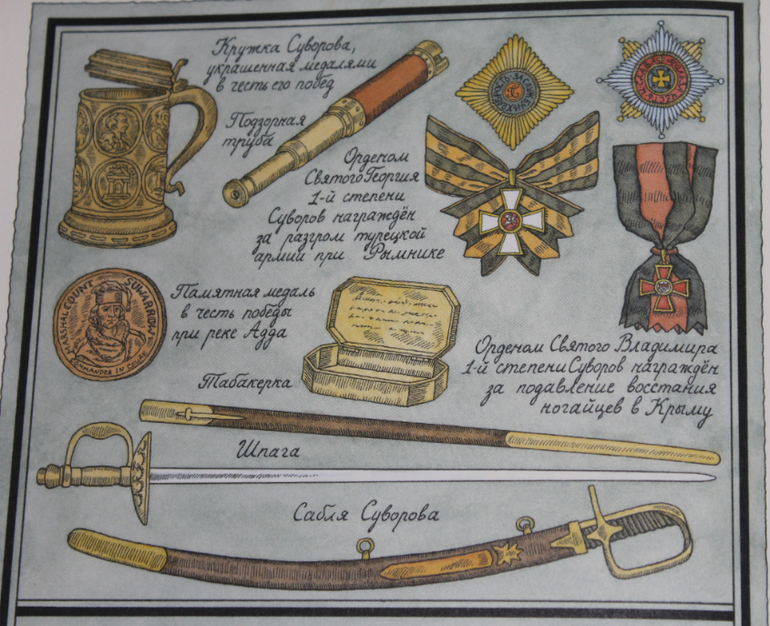 Кружка Суворова,
украшенная медалями
в честь его побед
Подзорная
труба
Орденом
Святого Георгия
1-й степени
Суворов награждён
за разгром турецкой
армии при Рымнике
MARSHAL COUNT SUWARROW
COMMANDER IN CHIEF
Памятная медаль
в честь победы
при реке Адда
Табакерка
Орденом Святого Владимира
1-й степени Суворов награждён
за подавление восстания
ногайцев в Крыму
Шпага
Сабля Суворова